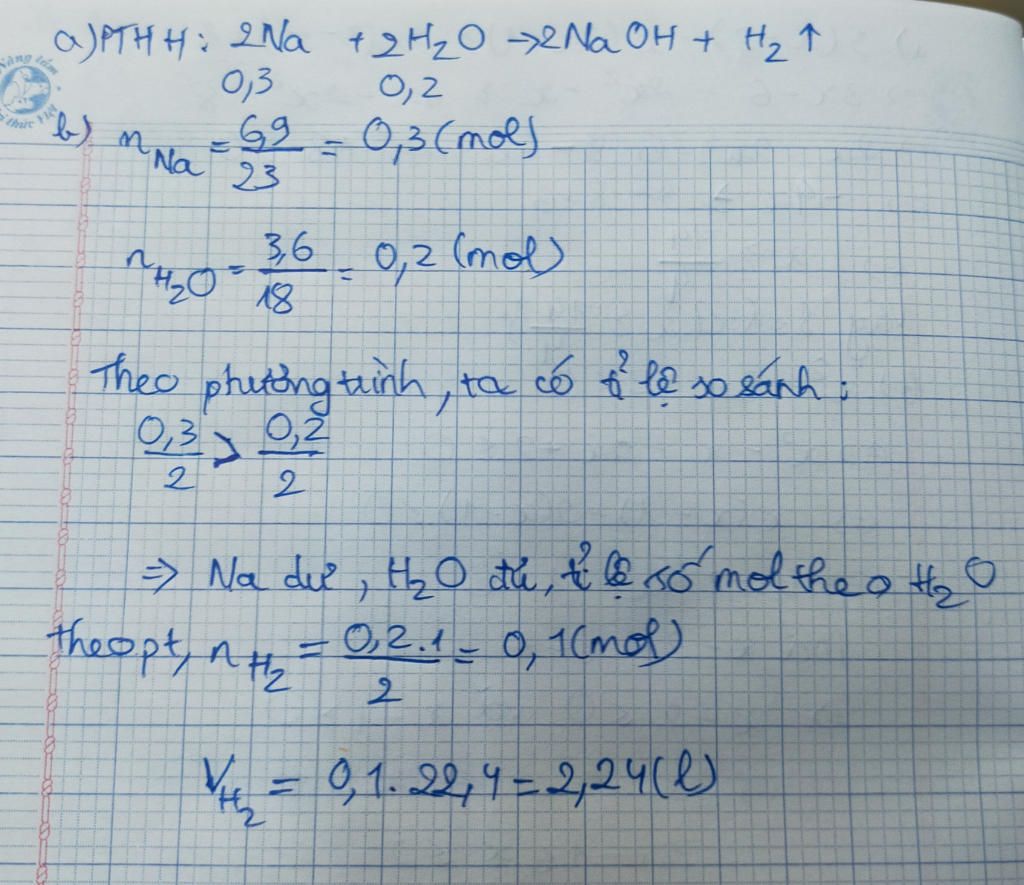 a) PTHH: 2Na + 2H₂O → 2NaOH + H₂ ↑
0,3 0,2
b) n Na = 6,9/23 = 0,3 (mol)
n H₂O = 3,6/18 = 0,2 (mol)
Theo phương trình, ta có tỉ lệ so sánh:
0,3/2 > 0,2/2
⇒ Na dư, H₂O đủ, tỉ lệ số mol theo H₂O
theo pt, n H₂ = 0,2.1/2 = 0,1 (mol)
V H₂ = 0,1.22,4 = 2,24 (l)